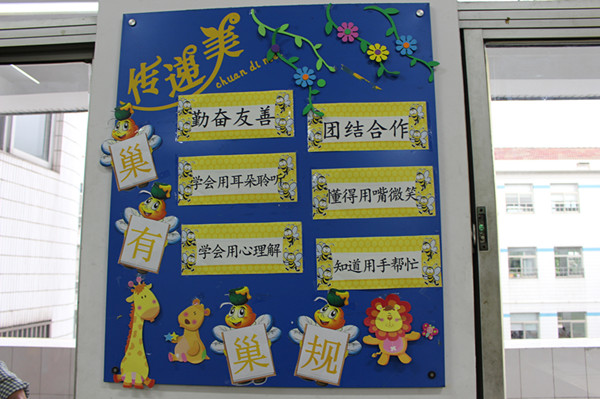 传递美
chuan di mei
勤奋友善
团结合作
学会用耳朵聆听
懂得用嘴微笑
学会用心理解
知道用手帮忙
巢
有
巢
规